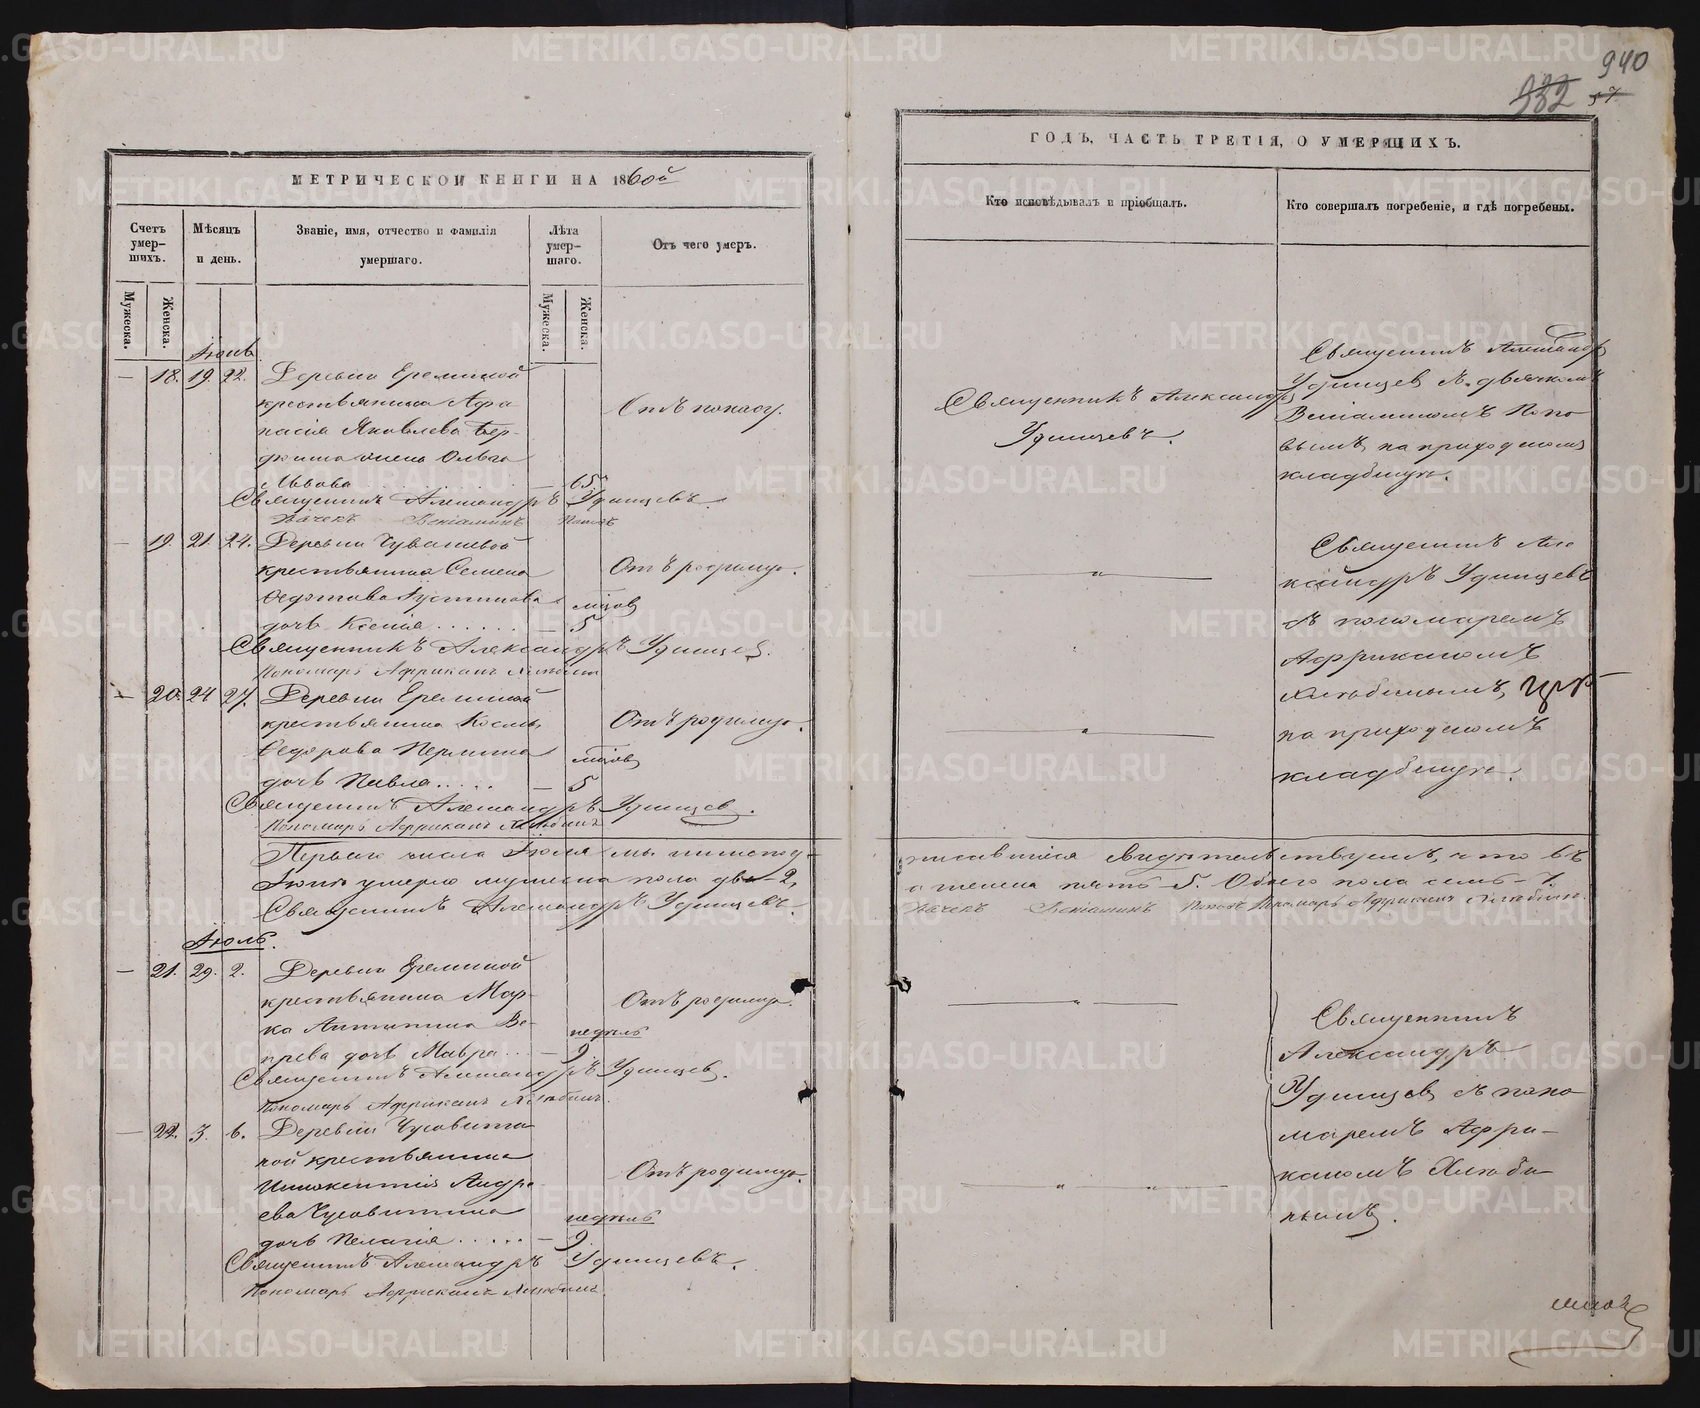 940
932 57
МЕТРИЧЕСКОЙ КНИГИ НА 1860й
ГОДЪ, ЧАСТЬ ТРЕТІЯ, О УМЕРШИХЪ.
Счетъ умер-шихъ.
Мужеска.
Женска.
Мѣсяцъ и день.
Званіе, имя, отчество и фамилія умершаго.
Лѣта умер-шаго.
Мужеска.
Женска.
Отъ чего умеръ.
Кто исповѣдывалъ и пріобщалъ.
Кто совершалъ погребеніе, и гдѣ погребены.
Іюнь
— 18. 19. 22. Деревни Ереминой
крестьянина Афа
насія Яковлева
жена Ольга
Львова — 65
Отъ поносу.
Священникъ Александръ
Удинцевъ.
Священникъ Александръ
Удинцевъ съ дьячкомъ
Веніаминомъ Попо
вымъ на приходскомъ
кладбищѣ.
Священникъ Александръ Удинцевъ.
Дьячекъ Веніаминъ Поповъ
— 19. 21. 24. Деревни Чувашевой
крестьянина Семена
Федотова Устинова
дочь Ксенія — 5
мѣсяцовъ
Отъ родимцу.
Священникъ Але
ксандръ Удинцевъ
съ пономаремъ
Африканомъ
Хлюбинымъ,
на приходскомъ
кладбищѣ.
Священникъ Александръ Удинцевъ.
Пономарь Африканъ Хлюбинъ
— 20. 24 27. Деревни Ереминой
крестьянина Космы
Федорова Пермина
дочь Павла — 5
мѣсяцовъ
Отъ родимцу.
Священникъ Александръ Удинцевъ.
Пономарь Африканъ Хлюбинъ
Перваго числа Іюля мы нижепод-
писавшіеся свидѣтельствуемъ, что въ
Іюнѣ умерло мужеска пола два - 2,
а женска пять - 5. Обоего пола семь - 7.
Священникъ Александръ Удинцевъ.
Дьячекъ Веніаминъ Поповъ Пономарь Африканъ Хлюбинъ.
Іюль.
— 21. 29. 2. Деревни Ереминой
крестьянина Мар-
ка Антипина Ве-
прева дочь Мавра — 9
недѣль
Отъ родимцу.
Священникъ
Александръ
Удинцевъ съ поно
маремъ Афри-
каномъ Хлюби
нымъ.
Священникъ Александръ Удинцевъ.
Пономарь Африканъ Хлюбинъ.
— 22. 3. 6. Деревни Чусовити
ной крестьянина
Иннокентія Андре
ева Чусовитина
дочь Пелагія — 9
недѣль
Отъ родимцу.
Священникъ Александръ Удинцевъ.
Пономарь Африканъ Хлюбинъ
METRIKI.GASO-URAL.RU